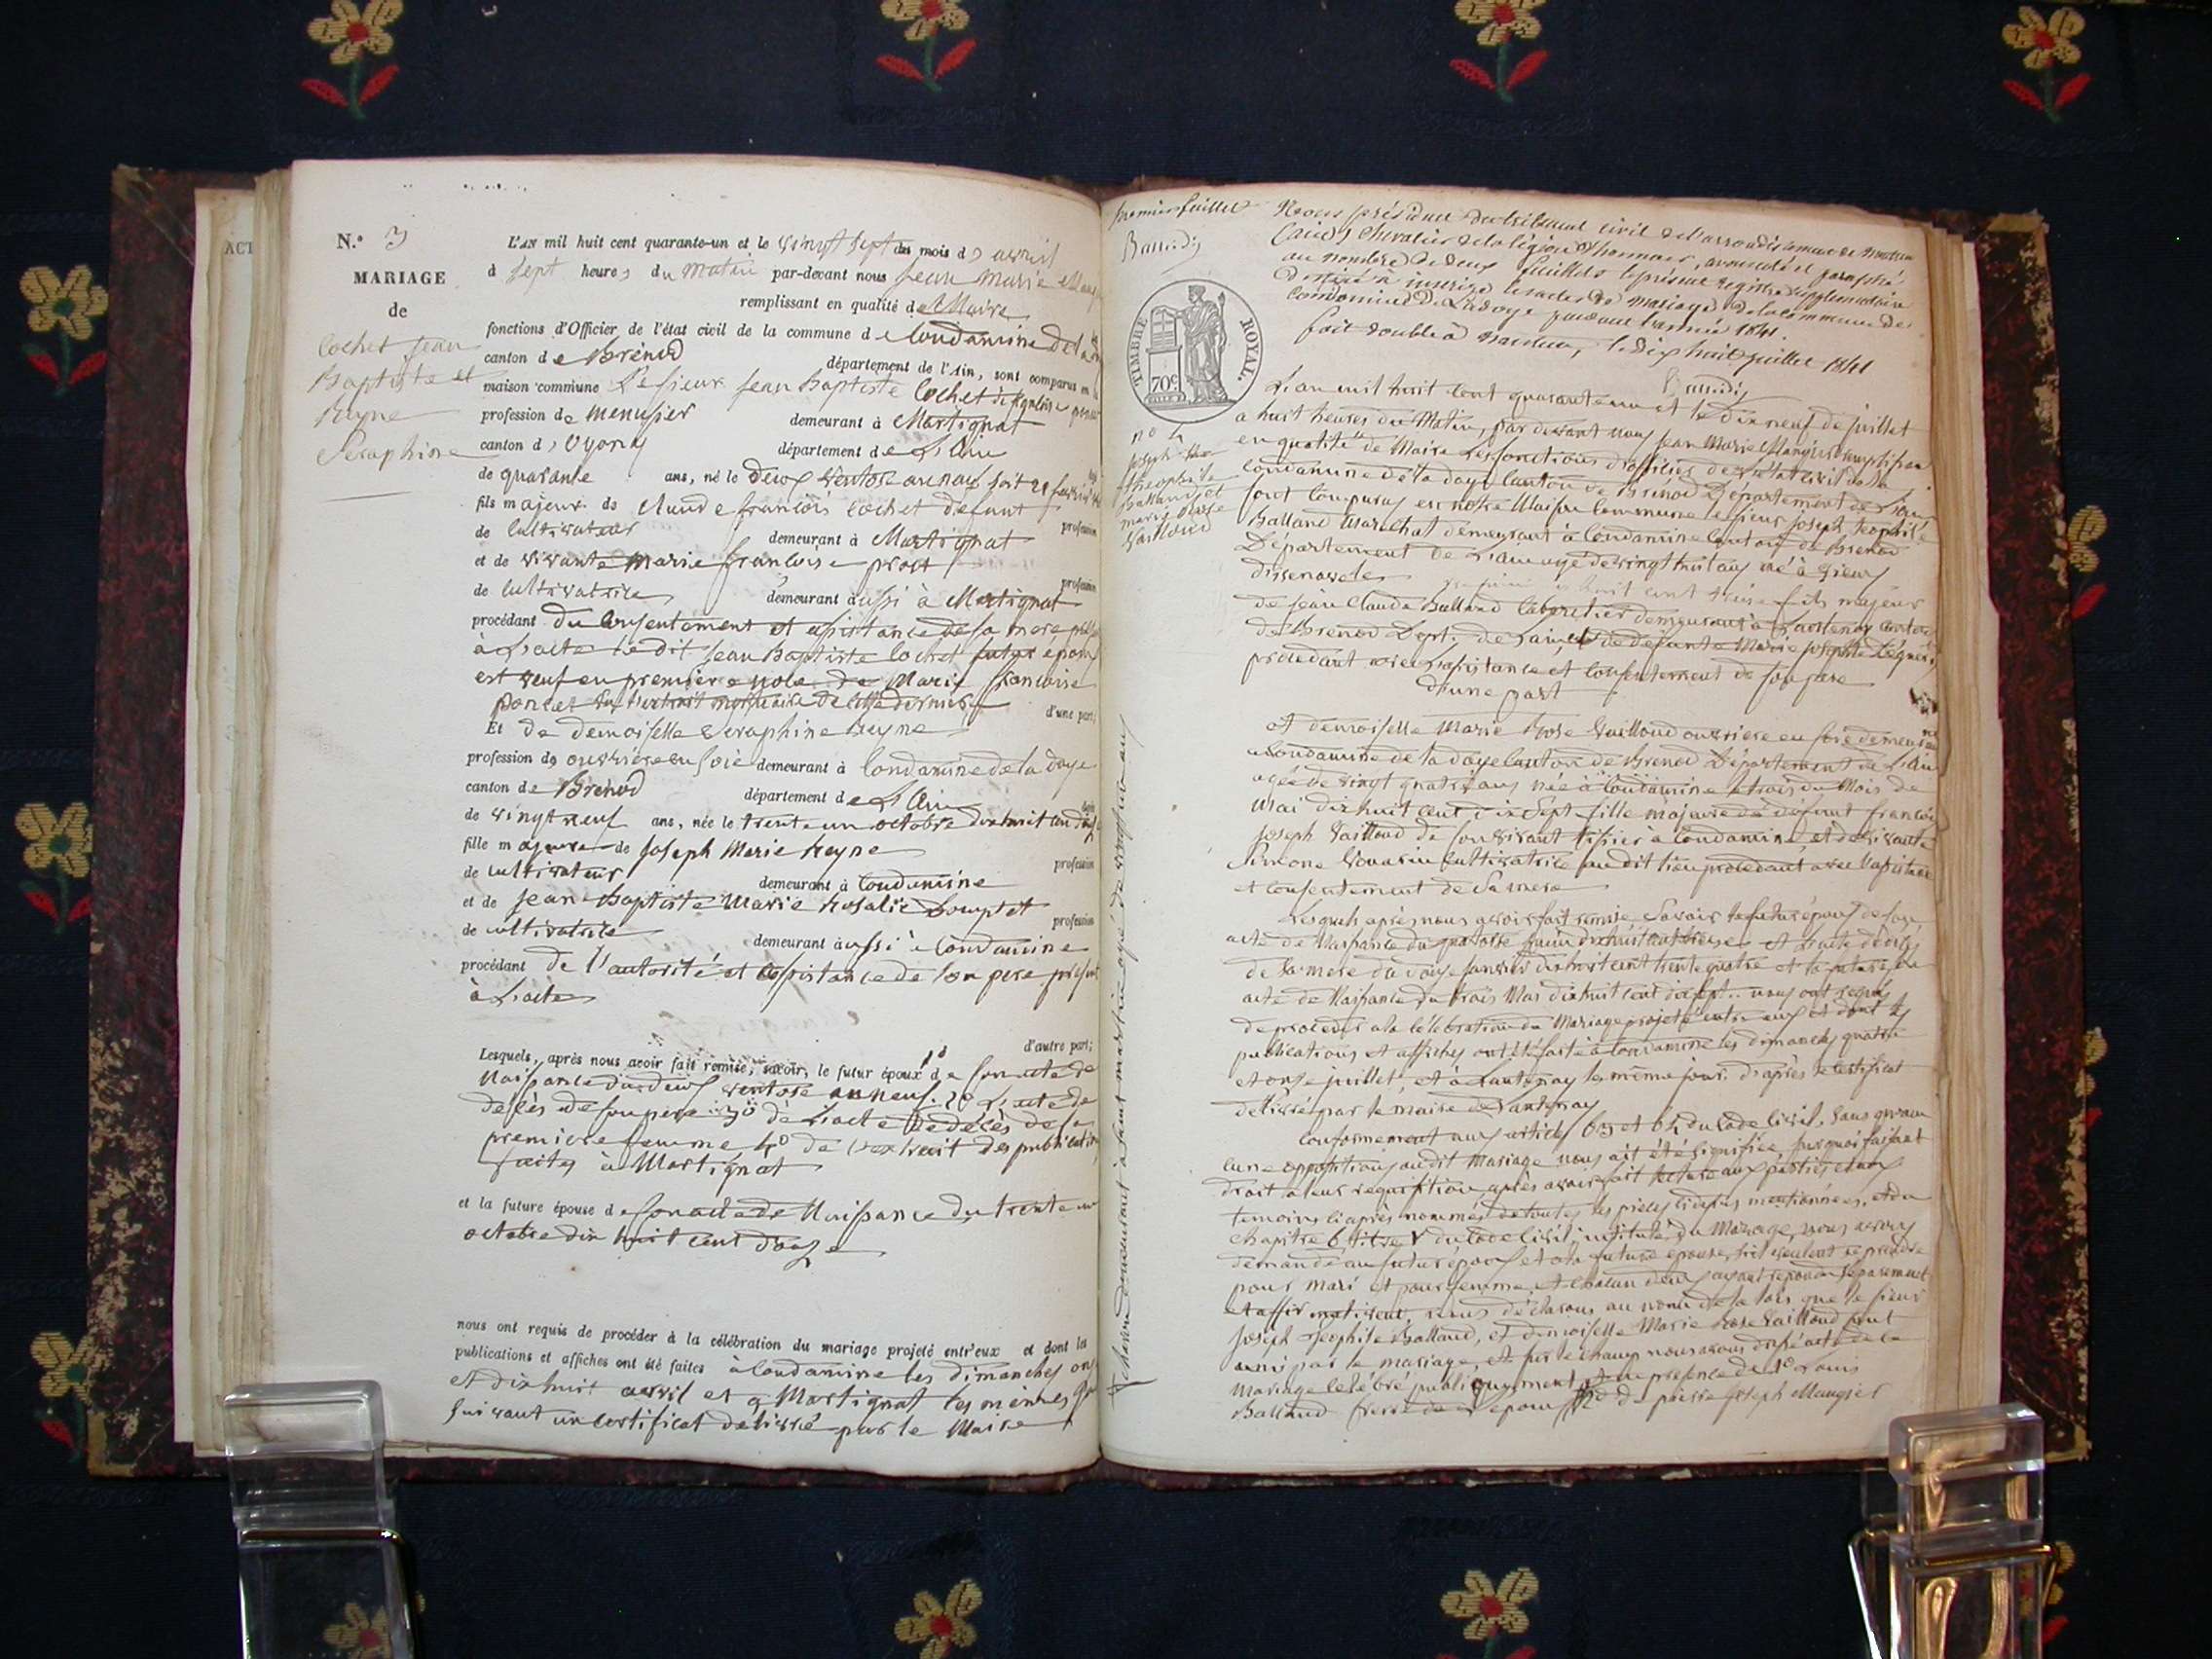 ACT
N.º 3
MARIAGE
de
Cochet Jean
Baptiste et
Reyne
Seraphine
L'AN mil huit cent quarante-un et le vingt sept du mois d'avril
à sept heures du matin par-devant nous Jean Marie
remplissant en qualité de Maire
fonctions d'Officier de l'état civil de la commune de Condamine de la
canton de Brénod département de l'Ain, sont comparus en
maison commune Le sieur Jean Baptiste Cochet
profession de menusier demeurant à Martignat
canton d'Oyonax département de L'Ain
de quarante ans, né le deux ventose an neuf soit
fils majeur de Claude francois Cochet defunt
profession
de Cultivateur demeurant à Martignat
et de vivante Marie francoise prost
profession
de Cultivatrice demeurant aussi à Martignat
procédant du Consentement et assistance de sa mere
à L'acte Ledit Jean Baptiste Cochet futur epoux
est veuf en premiere de Marie francoise
Poncet de cette derniere
d'une part;
Et de demoiselle Seraphine Reyne
profession de ouvriere en soie demeurant à Condamine de la doye
canton de Brénod département de L'Ain
de vingt neuf ans, née le trente un octobre dix huit cent
fille majeure de Joseph Marie Reyne
profession
de Cultivateur demeurant à Condamine
et de Jean Baptiste Marie Rosalie
profession
de Cultivatrice demeurant aussi à Condamine
procédant de l'autorité et assistance de son pere présent
à L'acte
d'autre part;
Lesquels, après nous avoir fait remise, savoir, le futur époux 1º de son acte de
Naissance du deux ventose an neuf. 2º L'acte de
decès de son pere 3º de L'acte de décès de sa
premiere femme 4º de L'extrait des publications
faites à Martignat
et la future épouse de son acte de Naissance du trente un
octobre dix huit cent onze
nous ont requis de procéder à la célébration du mariage projeté entr'eux et dont les
publications et affiches ont été faites à Condamine les dimanches onze
et dix huit avril et à Martignat les mêmes
suivant un certificat delivré par le Maire
premier feuillet
Nous président du tribunal civil de l'arrondissement de Nantua
(ain) Chevalier de la légion d'honneur, avons coté et paraphé
au nombre de deux feuillets le présent registre supplémentaire
destiné à inscrire les actes de mariage de la commune de
Condamine de Ladoye pendant l'année 1841.
fait double à Nantua, le dix huit juillet 1841
TIMBRE ROYAL.
70c.
nº 4
Joseph
theophile
Balland et
marie Rose
Vailloud
L'an mil huit cent quarante un et le dix neuf de juillet
à huit heures du Matin, par devant nous Jean Marie Mangier remplissant
en qualité de Maire les fonctions d'officier de l'état civil de la
Condamine de la doye Canton de Brénod Département de L'ain
sont Comparus en notre Maison Commune le sieur Joseph theophile
Balland Marechal demeurant à Condamine Canton de Brenod
Département de L'ain agé de vingt huit ans né à vieux
huit cent treize fils majeur
de Jean Claude Balland demeurant à Lantenay Canton
de Brenod Dept. de L'ain, et de defunte Marie
procedant avec L'assistance et Consentement de son pere
d'une part
et demoiselle Marie Rose Vailloud ouvriere en soie demeurant
à Condamine de la doye Canton de Brenod Département de L'ain
agée de vingt quatre ans née à Condamine le trois du Mois de
Mai dix huit cent dix Sept fille majeure de défunt francois
Joseph Vailloud de son vivant à Condamine, et de vivante
Simone Cultivatrice audit lieu procedant avec L'assistance
et Consentement de Sa mere
Lesquels après nous avoir fait remise, Savoir le futur époux de son
acte de Naissance du quatorze dix huit cent treize et L'acte de décès
de Sa mere du janvier dix huit cent trente quatre et la future son
acte de Naissance du trois Mai dix huit cent dix sept.. nous ont requis
de proceder a la célébration du Mariage projeté entre eux et dont les
publications et affiches ont été faites à Condamine les dimanches quatre
et onze juillet, et à Lantenay le même jour. d'après le certificat
delivré par le maire de Lantenay
Conformement aux articles 63 et 64 du Code Civil. Sans qu'aucune
opposition audit Mariage nous ait été signifiée, Surquoi faisant
droit à leur requisition après avoir fait lecture aux parties, et aux
temoins ci après nommés de toutes les pieces ci dessus mentionnées, et du
chapitre 6 titre V du Code Civil, intitulé du Mariage, nous avons
demandé au futur époux et à la future epouse, s'ils veulent se prendre
pour mari et pour femme, et chacun d'eux ayant repondu séparement
et affirmativement, nous déclarons au nom de la loi que le sieur
Joseph Theophile Balland, et demoiselle Marie Rose Vailloud sont
unis par le mariage, et sur le champ nous avons dressé acte de ce
Mariage célébré publiquement en presence de 1º Louis
Balland frere de L'epoux 2º de pierre Joseph Mangier
demeurant à Saint martin agé de